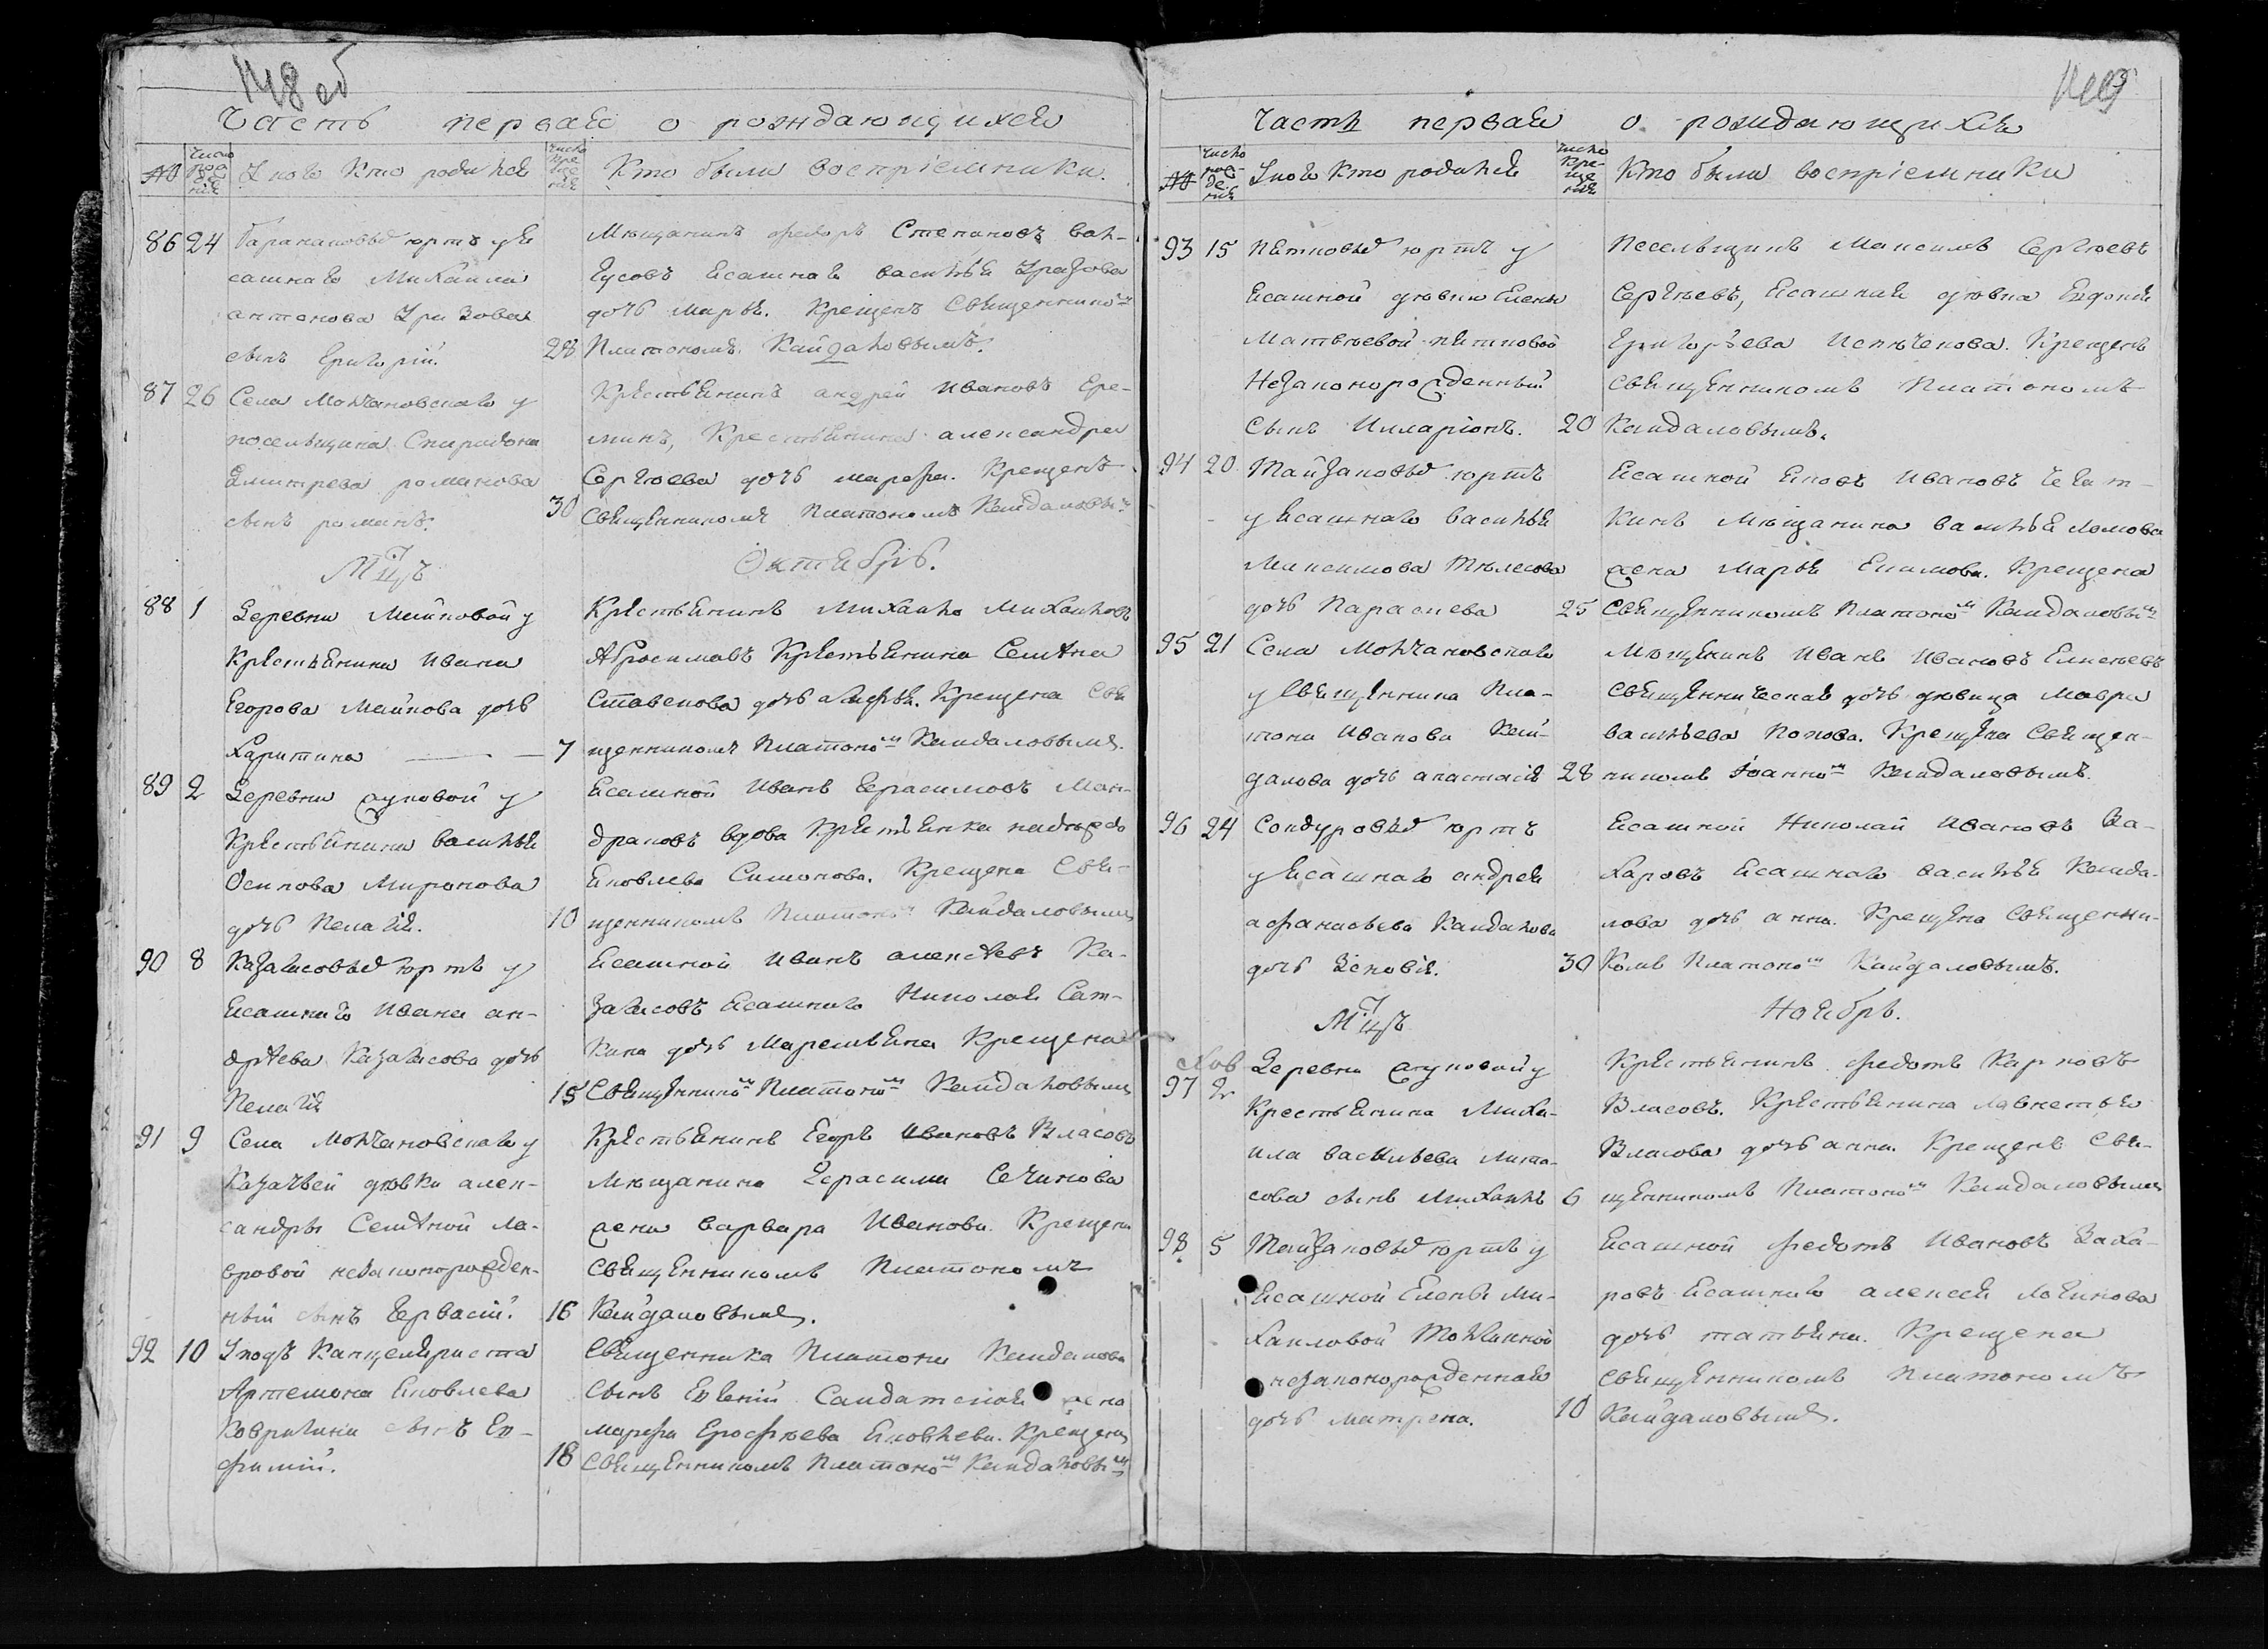 148 об
Часть первая о рождающихся
№
Число рождения
У кого кто родился
Число крещения
Кто были воспріемники.
86 24 Баранаковыхъ юртъ у Ясашнаго Михаила Антонова Уразова сынъ Григорій.
28
Мѣщанинъ Федоръ Степановъ Вол-
гусовъ Ясашнаго Василья Уразова
дочь Марья. Крещенъ Священникомъ
Платономъ Кайдаловымъ.
87 26 Села Молчановскаго у
посельщика Спиридона
Дмитрева Романова
сынъ Романъ.
30
Крестьянинъ Андрей Ивановъ Ере-
минъ, Крестьянина Александра
Сергѣева дочь Марфа. Крещенъ
Священникомъ Платономъ Кайдаловымъ
Мцъ Октябрь.
88 1 Деревни Майковой у
Крестьянина Ивана
Егорова Майкова дочь
Харитина
7
Крестьянинъ Михайло Михайловъ
Абросимовъ Крестьянина Семена
дочь Крещена Свя
щенникомъ Платономъ Кайдаловымъ.
89 2 Деревни Жуковой у
Крестьянина Василья
Осипова Миронова
дочь Пелагія.
10
Ясашной Иванъ Герасимовъ Ман-
драковъ вдова Крестьянка Надежда
Яковлева Симонова. Крещена Свя-
щенникомъ Платономъ Кайдаловымъ
90 8 юртъ у
Ясашнаго Ивана Ан-
дрѣева дочь
Пелагія
15
Ясашной Иванъ Алексѣевъ Ка-
Ясашнаго Николая Сат-
кина дочь Маремьяна Крещена
Священникомъ Платономъ Кайдаловымъ
91 9 Села Молчановскаго у
Казачьей дѣвки Алек-
сандры Семеной Ла-
вровой незаконорожден-
ный сынъ Гервасій.
16
Крестьянинъ Егоръ Ивановъ Власовъ
Мѣщанина Герасима Сечинова
жена Варвара Иванова. Крещенъ
Священникомъ Платономъ
Кайдаловымъ.
92 10 Умодъ Канцеляриста
Артемона Яковлева
Ковригина сынъ Ев-
фимій.
18
Священника Платона Кайдалова
сынъ Евгеній Салдатская жена
Марфа Ерофѣева Яковлева. Крещенъ
Священникомъ Платономъ Кайдаловымъ
149
Часть первая о рождающихся
№
Число рождения
У кого кто родился
Число крещения
Кто были воспріемники
93 15 Пѣтковыхъ юртъ у
Ясашной дѣвки Елены
Матвѣевой Пѣтковой
Незаконорожденный
сынъ Илларіонъ.
20
Поселыщикъ Максимъ Сергѣевъ
Сергѣевъ, Ясашная дѣвка Евдокія
Григорьева Крещенъ
Священникомъ Платономъ
Кайдаловымъ.
94 20 Тайзаковыхъ юртъ
у Ясашнаго Василья
Максимова Тѣлесова
дочь Параскева
25
Ясашной Яковъ Ивановъ Чекат-
кинъ Мѣщанина Василья Ломова
жена Марья Екимова. Крещена
Священникомъ Платономъ Кайдаловымъ
95 21 Села Молчановскаго
у Священника Пла-
тона Иванова Кай-
далова дочь Анастасія
28
Мѣщанинъ Иванъ Ивановъ Елисѣевъ
Священническая дочь дѣвица Мавра
Васильева Попова. Крещена Священ-
никомъ Іоанномъ Кайдаловымъ.
96 24 Сондуровыхъ юртъ
у Ясашнаго Андрея
Афанасьева Кайдалова
дочь Зѣновія.
30
Ясашной Николай Ивановъ За-
харовъ Ясашнаго Василья Кайда-
лова дочь Анна. Крещена Священни-
комъ Платономъ Кайдаловымъ.
Мцъ Ноябрь.
97 2 Деревни Жуковой у
Крестьянина Миха-
ила Васильева Лита-
сова сынъ Михаилъ
6
Крестьянинъ Федотъ Карповъ
Власовъ. Крестьянина Лавнетью
Власова дочь Анна. Крещенъ Свя-
щенникомъ Платономъ Кайдаловымъ
98 5 Тайзаковыхъ юртъ у
Ясашной Елены Ми-
хаиловой
незаконорожденная
дочь Матрена.
10
Ясашной Федотъ Ивановъ Заха-
ровъ Ясашнаго Алексея Логинова
дочь Татьяна. Крещена
Священникомъ Платономъ
Кайдаловымъ.